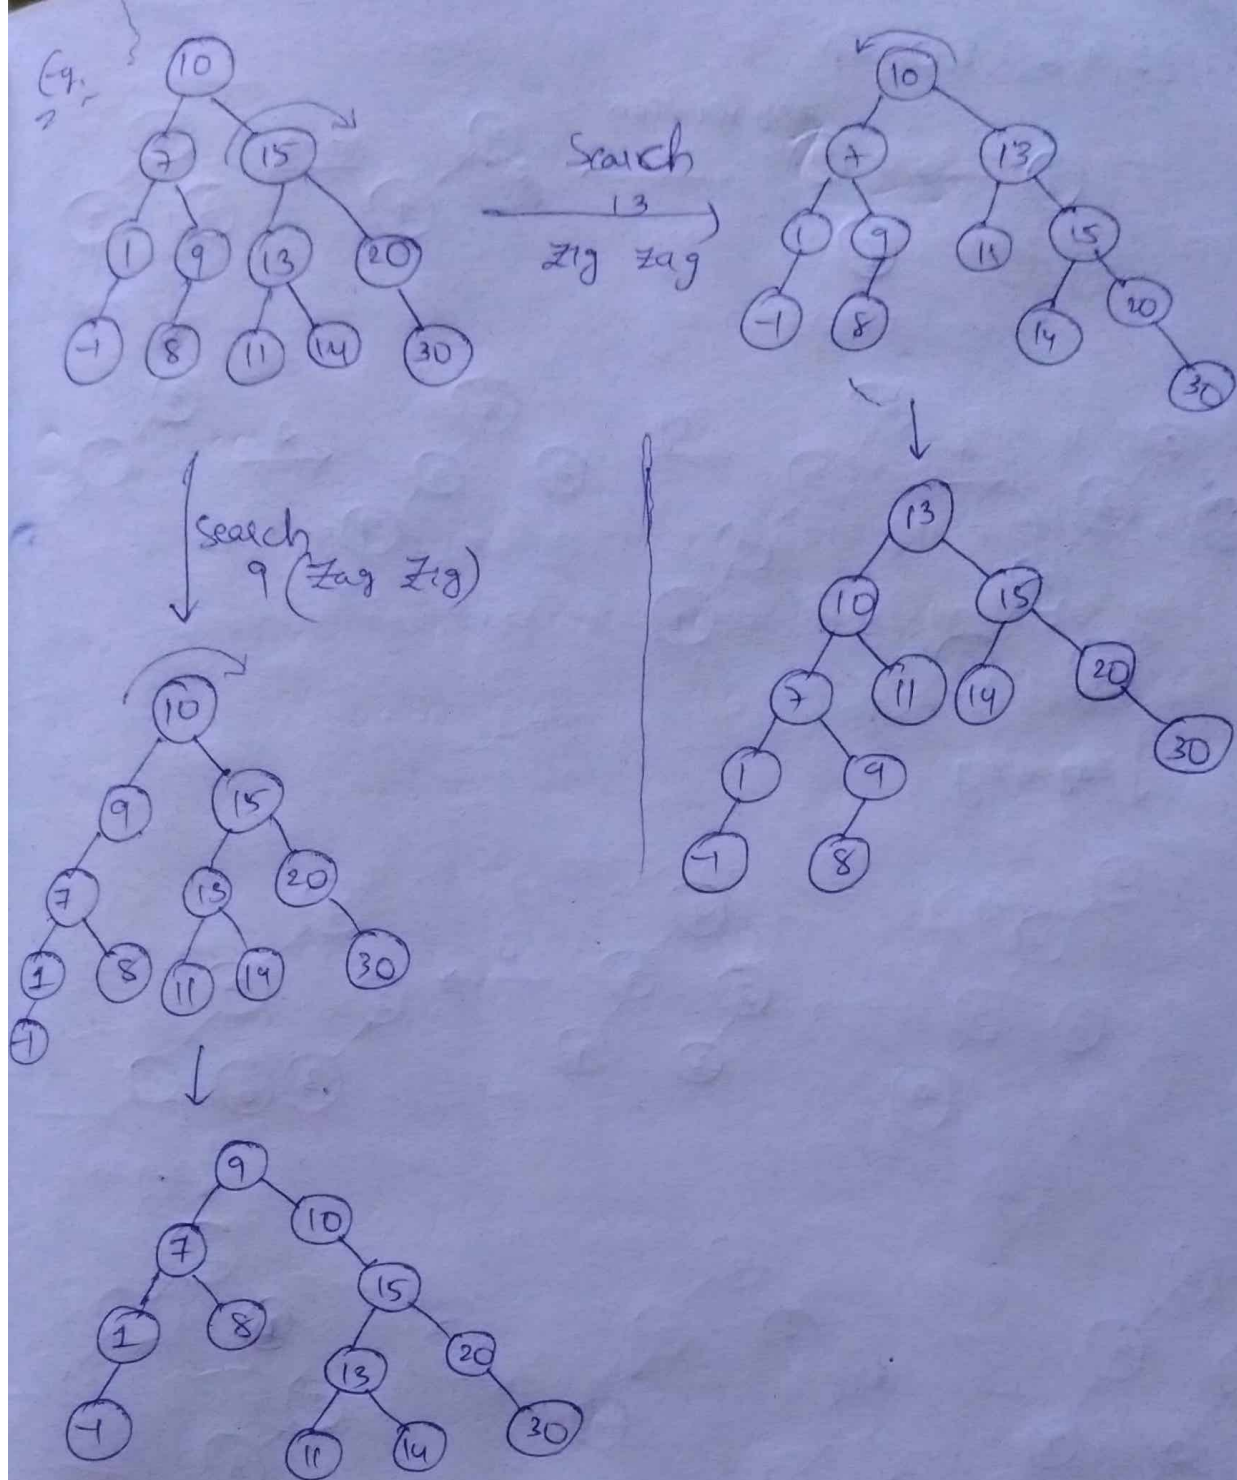 Eg.
10
7 15
1 9 13 20
-1 8 11 14 30
Search
13
Zig Zag
10
7 13
1 9 11 15
-1 8 14 20
30
13
10 15
7 11 14 20
1 9 30
-1 8
Search
9 (Zag Zig)
10
9 15
7 13 20
1 8 11 14 30
-1
9
7 10
15
1 8
13 20
-1 11 14 30